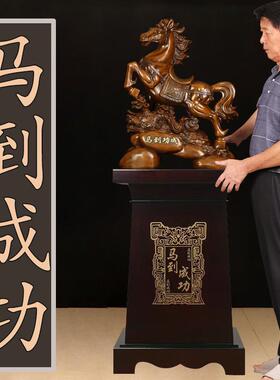 马到成功
马到功成
马到
成功